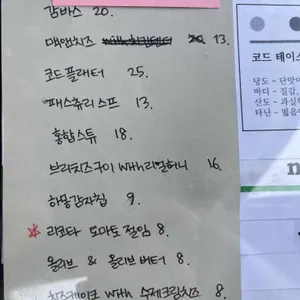 감바스 20.
맥앤치즈 13.
코드플래터 25.
패스츄리스프 13.
홍합스튜 18.
브리치즈구이 with 리얼허니 16.
하몽감자칩 9.
리코타 토마토 절임 8.
올리브 & 올리브 버터 8.
치즈케이크 with 수제크림치즈 8.
코드 테이스
당도 - 단맛이
바디 - 질감,
산도 - 과실이
타닌 - 떫음이